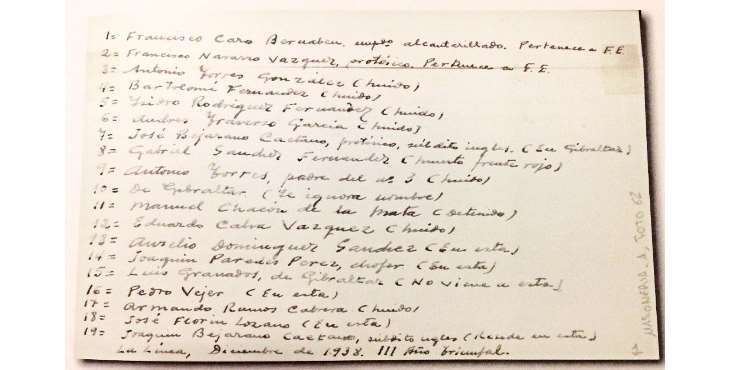 1= Francisco Caro Bernabeu, emptº alcantarillado. Pertenece a F.E.
2= Francisco Navarro Vazquez, protésico. Pertenece a F.E.
3= Antonio Torres González (huido)
4= Bartolomé Fernandez (huido)
5= Ysidro Rodriguez Fernandez (huido)
6= Andres Traverso Garcia (huido)
7= José Bejarano Caetano, protésico, súbdito ingles. (En Gibraltar)
8= Gabriel Sanchez Fernandez (muerto frente rojo)
9= Antonio Torres, padre del nº 3 (huido)
10= De Gibraltar (se ignora nombre)
11= Manuel Chacón de la Mata (detenido)
12= Eduardo Calva Vazquez (huido)
13= Aurelio Dominguez Sanchez (En esta)
14= Joaquin Paredes Perez, chofer (En esta)
15= Luis Granados, de Gibraltar (No viene a esta)
16= Pedro Vejer (En esta)
17= Armando Ramos Cabrera (huido)
18= José Florin Lozano (En esta)
19= Joaquin Bejarano Caetano, súbdito ingles (Reside en esta)
La Línea, Diciembre de 1938. III Año Triunfal.
MASONERIA A, FOTO 62